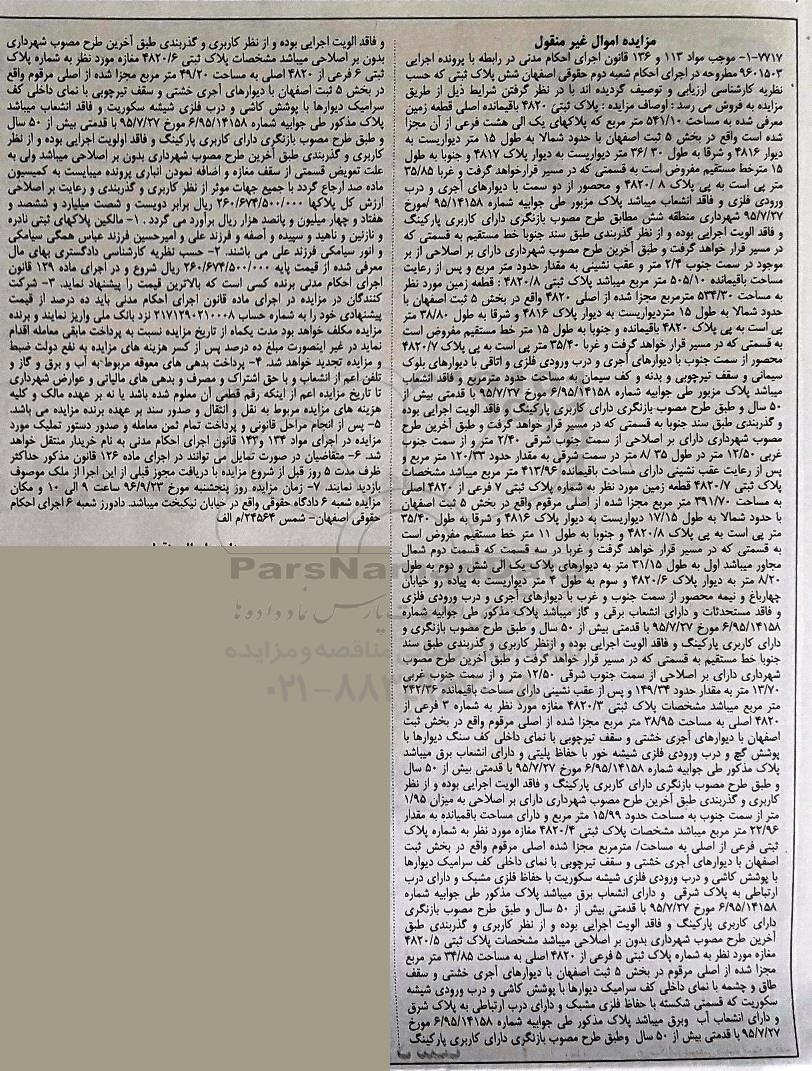 مزایده اموال غیر منقول
۱-۷۷۱۷- موجب مواد ۱۱۳ و ۱۳۶ قانون اجرای احکام مدنی در رابطه با پرونده اجرایی
۹۶۰۱۵۰۳ مطروحه در اجرای احکام شعبه دوم حقوقی اصفهان شش پلاک ثبتی که حسب
نظریه کارشناسی ارزیابی و توصیف گردیده اند با در نظر گرفتن شرایط ذیل از طریق
مزایده به فروش می رسد : اوصاف مزایده : پلاک ثبتی ۴۸۲۰ باقیمانده اصلی قطعه زمین
معرفی شده به مساحت ۵۴۱/۱۰ متر مربع که پلاکهای یک الی هشت فرعی از آن مجزا
شده است واقع در بخش ۵ ثبت اصفهان با حدود شمالا به طول ۱۵ متر دیواریست به
دیوار ۴۸۱۶ و شرقا به طول ۳۰ /۳۶ متر دیواریست به دیوار پلاک ۴۸۱۷ و جنوبا به طول
۱۵ مترخط مستقیم مفروض است به قسمتی که در مسیر قرارخواهد گرفت و غربا ۳۵/۸۵
متر پی است به پی پلاک ۸ /۴۸۲۰ و محصور از دو سمت با دیوارهای آجری و درب
ورودی فلزی و فاقد انشعاب میباشد پلاک مزبور طی جوابیه شماره ۹۵/۱۴۱۵۸ /مورخ
۹۵/۷/۲۷ شهرداری منطقه شش مطابق طرح مصوب بازنگری دارای کاربری پارکینگ
و فاقد الویت اجرایی بوده و از نظر گذربندی طبق سند جنوبا خط مستقیم به قسمتی که
در مسیر قرار خواهد گرفت و طبق آخرین طرح مصوب شهرداری دارای بر اصلاحی از بر
موجود در سمت جنوب ۲/۴ متر و عقب نشینی به مقدار حدود متر مربع و پس از رعایت
مساحت باقیمانده ۵۰۵/۱۰ متر مربع میباشد پلاک ثبتی ۴۸۲۰/۸ : قطعه زمین مورد نظر
به مساحت ۵۳۴/۳۰ مترمربع مجزا شده از اصلی ۴۸۲۰ واقع در بخش ۵ ثبت اصفهان با
حدود شمالا به طول ۱۵ متردیواریست به دیوار پلاک ۴۸۱۶ و شرقا به طول ۳۸/۸۰ متر
پی است به پی پلاک ۴۸۲۰ باقیمانده و جنوبا به طول ۱۵ متر خط مستقیم مفروض است
به قسمتی که در مسیر قرار خواهد گرفت و غربا ۳۵/۴۰ متر پی است به پی پلاک ۴۸۲۰/۷
محصور از سمت جنوب با دیوارهای آجری و درب ورودی فلزی و اتاقی با دیوارهای بلوک
سیمانی و سقف تیرچوبی و بدنه و کف سیمان به مساحت حدود مترمربع و فاقد انشعاب
میباشد پلاک مزبور طی جوابیه شماره ۶/۹۵/۱۴۱۵۸ مورخ ۹۵/۷/۲۷ با قدمتی بیش از
۵۰ سال و طبق طرح مصوب بازنگری دارای کاربری پارکینگ و فاقد الویت اجرایی بوده
و گذربندی طبق سند جنوبا به قسمتی که در مسیر قرار خواهد گرفت و طبق آخرین طرح
مصوب شهرداری دارای بر اصلاحی از سمت جنوب شرقی ۲/۴۰ متر و از سمت جنوب
غربی ۱۲/۵۰ متر در طول ۳۵ /۸ متر در سمت شرقی به مقدار حدود ۱۲۰/۳۳ متر مربع و
پس از رعایت عقب نشینی دارای مساحت باقیمانده ۴۱۳/۹۶ متر مربع میباشد مشخصات
پلاک ثبتی ۴۸۲۰/۷ قطعه زمین مورد نظر به شماره پلاک ثبتی ۷ فرعی از ۴۸۲۰ اصلی
به مساحت ۳۹۱/۷۰ متر مربع مجزا شده از اصلی مرقوم واقع در بخش ۵ ثبت اصفهان
با حدود شمالا به طول ۱۷/۱۵ دیواریست به دیوار پلاک ۴۸۱۶ و شرقا به طول ۳۵/۴۰
متر پی است به پی پلاک ۴۸۲۰/۸ و جنوبا به طول ۱۱ متر خط مستقیم مفروض است
به قسمتی که در مسیر قرار خواهد گرفت و غربا در سه قسمت که قسمت دوم شمال
مجاور میباشد اول به طول ۳۱/۱۵ متر به دیوارهای پلاک یک الی شش و دوم به طول
۸/۲۰ متر به دیوار پلاک ۴۸۲۰/۶ و سوم به طول ۴ متر دیواریست به پیاده رو خیابان
چهارباغ و نیمه محصور از سمت جنوب و غرب با دیوارهای آجری و درب ورودی فلزی
و فاقد مستحدثات و دارای انشعاب برقی و گاز میباشد پلاک مذکور طی جوابیه شماره
۶/۹۵/۱۴۱۵۸ مورخ ۹۵/۷/۲۷ با قدمتی بیش از ۵۰ سال و طبق طرح مصوب بازنگری و
دارای کاربری پارکینگ و فاقد الویت اجرایی بوده و ازنظر کاربری و گذربندی طبق سند
جنوبا خط مستقیم به قسمتی که در مسیر قرار خواهد گرفت و طبق آخرین طرح مصوب
شهرداری دارای بر اصلاحی از سمت جنوب شرقی ۱۲/۵۰ متر و از سمت جنوب غربی
۱۳/۷۰ متر به مقدار حدود ۱۴۹/۳۴ و پس از عقب نشینی دارای مساحت باقیمانده ۲۴۲/۳۶
متر مربع میباشد مشخصات پلاک ثبتی ۴۸۲۰/۳ مغازه مورد نظر به شماره ۳ فرعی از
۴۸۲۰ اصلی به مساحت ۳۸/۹۵ متر مربع مجزا شده از اصلی مرقوم واقع در بخش ثبت
اصفهان با دیوارهای آجری خشتی و سقف تیرچوبی با نمای داخلی کف سنگ دیوارها با
پوشش گچ و درب ورودی فلزی شیشه خور با حفاظ پلیتی و دارای انشعاب برق میباشد
پلاک مذکور طی جوابیه شماره ۶/۹۵/۱۴۱۵۸ مورخ ۹۵/۷/۲۷ با قدمتی بیش از ۵۰ سال
و طبق طرح مصوب بازنگری دارای کاربری پارکینگ و فاقد الویت اجرایی بوده و از نظر
کاربری و گذربندی طبق آخرین طرح مصوب شهرداری دارای بر اصلاحی به میزان ۱/۹۵
متر از سمت جنوب به مساحت حدود ۱۵/۹۹ متر مربع و دارای مساحت باقمیانده به مقدار
۲۲/۹۶ متر مربع میباشد مشخصات پلاک ثبتی ۴۸۲۰/۴ مغازه مورد نظر به شماره پلاک
ثبتی فرعی از اصلی به مساحت/ مترمربع مجزا شده اصلی مرقوم واقع در بخش ثبت
اصفهان با دیوارهای آجری خشتی و سقف تیرچوبی با نمای داخلی کف سرامیک دیوارها
با پوشش کاشی و درب ورودی فلزی شیشه سکوریت با حفاظ فلزی مشبک و دارای درب
ارتباطی به پلاک شرقی و دارای انشعاب برق میباشد پلاک مذکور طی جوابیه شماره
۶/۹۵/۱۴۱۵۸ مورخ ۹۵/۷/۲۷ با قدمتی بیش از ۵۰ سال و طبق طرح مصوب بازنگری
دارای کاربری پارکینگ و فاقد الویت اجرایی بوده و از نظر کاربری و گذربندی طبق
آخرین طرح مصوب شهرداری بدون بر اصلاحی میباشد مشخصات پلاک ثبتی ۴۸۲۰/۵
مغازه مورد نظر به شماره پلاک ثبتی ۵ فرعی از ۴۸۲۰ اصلی به مساحت ۳۴/۸۵ متر مربع
مجزا شده از اصلی مرقوم در بخش ۵ ثبت اصفهان با دیوارهای آجری خشتی و سقف
طاق و چشمه با نمای داخلی کف سرامیک دیوارها با پوشش کاشی و درب ورودی شیشه
سکوریت که قسمتی شکسته با حفاظ فلزی مشبک و دارای درب ارتباطی به پلاک شرق
و دارای انشعاب آب وبرق میباشد پلاک مذکور طی جوابیه شماره ۶/۹۵/۱۴۱۵۸ مورخ
۹۵/۷/۲۷ با قدمتی بیش از ۵۰ سال وطبق طرح مصوب بازنگری دارای کاربری پارکینگ
و فاقد الویت اجرایی بوده و از نظر کاربری و گذربندی طبق آخرین طرح مصوب شهرداری
بدون بر اصلاحی میباشد مشخصات پلاک ثبتی ۴۸۲۰/۶ مغازه مورد نظر به شماره پلاک
ثبتی ۶ فرعی از ۴۸۲۰ اصلی به مساحت ۴۹/۲۰ متر مربع مجزا شده از اصلی مرقوم واقع
در بخش ۵ ثبت اصفهان با دیوارهای آجری خشتی و سقف تیرچوبی با نمای داخلی کف
سرامیک دیوارها با پوشش کاشی و درب فلزی شیشه سکوریت و فاقد انشعاب میباشد
پلاک مذکور طی جوابیه شماره ۶/۹۵/۱۴۱۵۸ مورخ ۹۵/۷/۲۷ با قدمتی بیش از ۵۰ سال
و طبق طرح مصوب بازنگری دارای کاربری پارکینگ و فاقد اولویت اجرایی بوده و از نظر
کاربری و گذربندی طبق آخرین طرح مصوب شهرداری بدون بر اصلاحی میباشد ولی به
علت تعویض قسمتی از سقف مغازه و اضافه نمودن انباری پرونده میبایست به کمیسیون
ماده صد ارجاع گردد با جمیع جهات موثر از نظر کاربری و گذربندی و رعایت بر اصلاحی
ارزش کل پلاکها ۲۶۰/۶۷۴/۵۰۰/۰۰۰ ریال برابر دویست و شصت میلیارد و ششصد و
هفتاد و چهار میلیون و پانصد هزار ریال برآورد می گردد . ۱- مالکین پلاکهای ثبتی نادره
و نازنین و ناهید و سپیده و آصفه و فرزند علی و امیرحسین فرزند عباس همگی سیامکی
و انور سیامکی فرزند علی می باشند. ۲- حسب نظریه کارشناسی دادگستری بهای مال
معرفی شده از قیمت پایه ۲۶۰/۶۷۴/۵۰۰/۰۰۰ ریال شروع و در اجرای ماده ۱۲۹ قانون
اجرای احکام مدنی برنده کسی است که بالاترین قیمت را پیشنهاد نماید. ۳- شرکت
کنندگان در مزایده در اجرای ماده قانون اجرای احکام مدنی باید ده درصد از قیمت
پیشنهادی خود را به شماره حساب ۲۱۷۱۲۹۰۲۱۰۰۰۸ نزد بانک ملی واریز نمایند و برنده
مزایده مکلف خواهد بود مدت یکماه از تاریخ مزایده نسبت به پرداخت مابقی معامله اقدام
نماید در غیر اینصورت مبلغ ده درصد پس از کسر هزینه های مزایده به نفع دولت ضبط
و مزایده تجدید خواهد شد. ۴- پرداخت بدهی های معوقه مربوط به آب و برق و گاز و
تلفن اعم از انشعاب و با حق اشتراک و مصرف و بدهی های مالیاتی و عوارض شهرداری
تا تاریخ مزایده اعم از اینکه رقم قطعی آن معلوم شده باشد یا نه بر عهده مالک و کلیه
هزینه های مزایده مربوط به نقل و انتقال و صدور سند بر عهده برنده مزایده می باشد.
۵- پس از انجام مراحل قانونی و پرداخت تمام ثمن معامله و صدور دستور تملیک مورد
مزایده در اجرای مواد ۱۳۳ و۱۴۳ قانون اجرای احکام مدنی به نام خریدار منتقل خواهد
شد. ۶- متقاضیان در صورت تمایل می توانند در اجرای ماده ۱۲۶ قانون مذکور حداکثر
ظرف مدت ۵ روز قبل از شروع مزایده با دریافت مجوز قبلی از این اجرا از ملک موصوف
بازدید نمایند. ۷- زمان مزایده روز پنجشنبه مورخ ۹۶/۹/۲۳ ساعت ۹ الی ۱۰ و مکان
مزایده شعبه ۶ دادگاه حقوقی واقع در خیابان نیکبخت میباشد. دادورز شعبه ۶ اجرای احکام
حقوقی اصفهان- شمس ۲۴۵۶۴/م الف